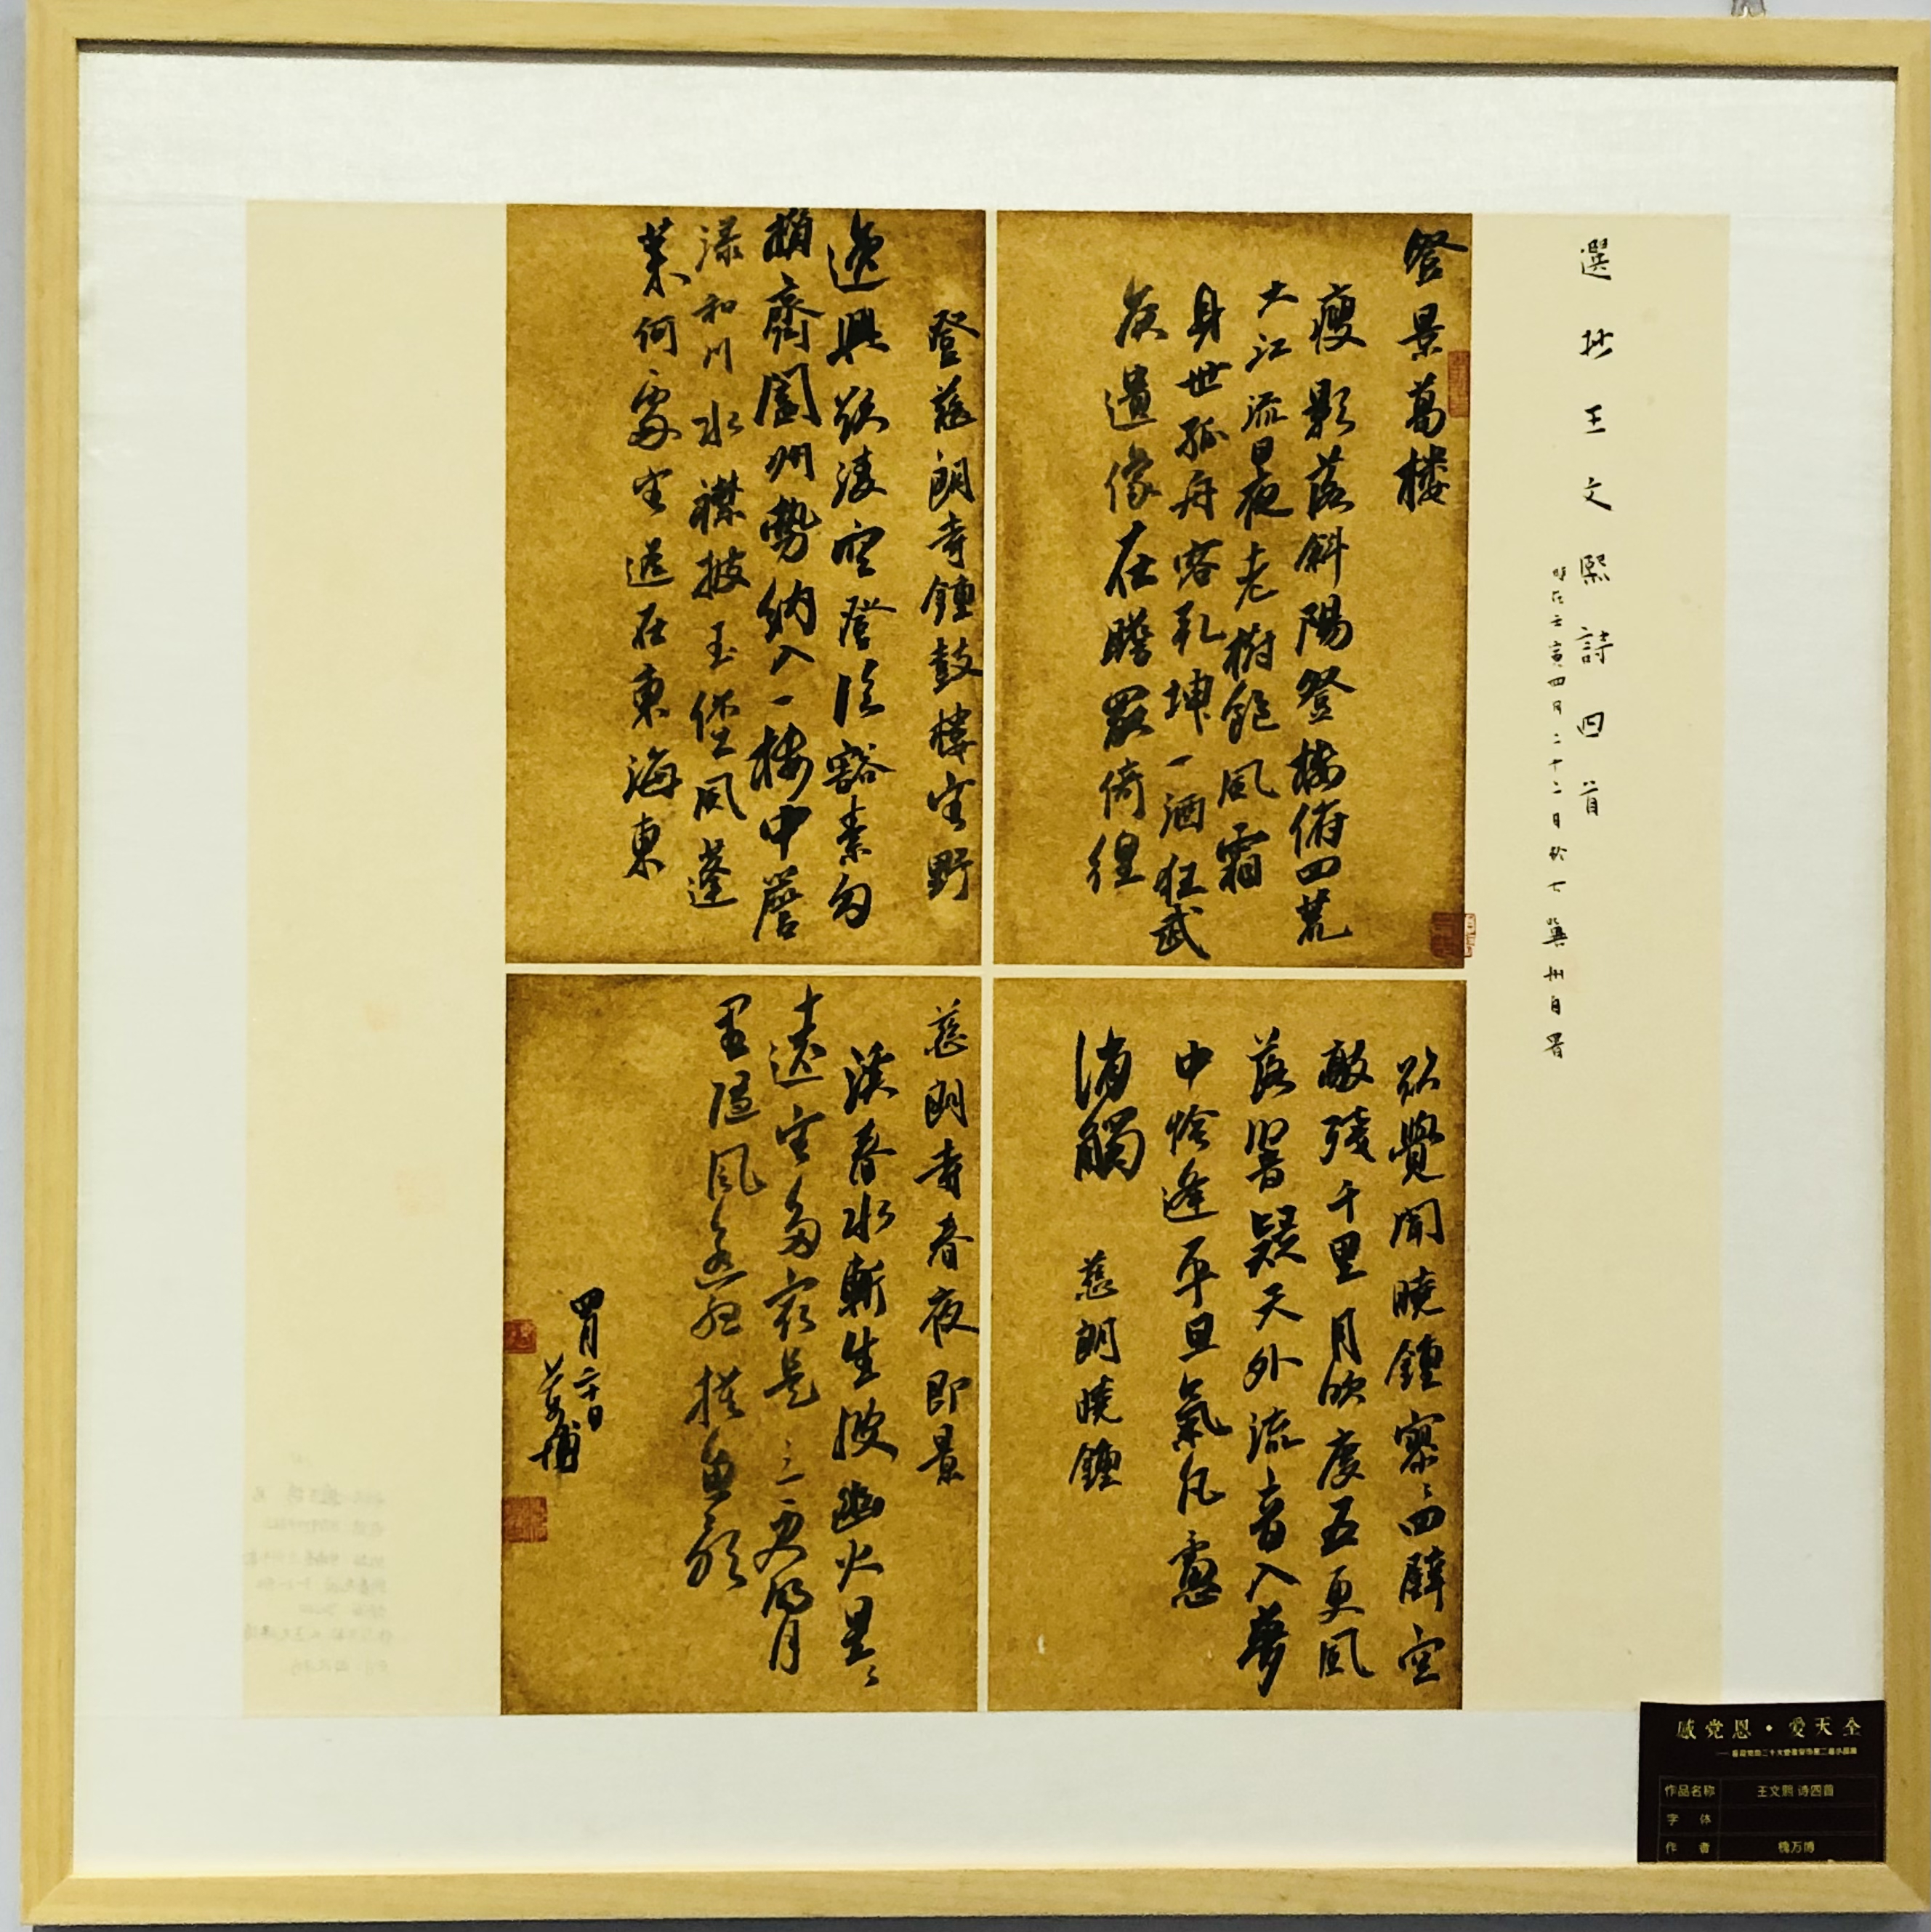 選抄王文熙詩四首
時在壬寅四月二十二日於七冀州自署
登景葛楼
瘦影落斜陽登楼俯四荒
大江流日夜老樹飽風霜
身世孤舟客乾坤一酒狂武
侯遺像在瞻眾倚徨
登慈朗寺鍾鼓樓望野
逸興欲凌空登臨豁素匈
勢納入一楼中詹
漾和川水襟披玉壘風蓬
萊何處望遥在東海東
欲覺聞曉鍾寥寥四壁空
敲殘千里月吹度五更風
落響疑天外流音入夢
中恰逢平旦氣凡慮
消觸
慈朗曉鍾
慈朗寺春夜即景
溪春水漸生波幽火星星
遠望多最是三更明月
里隔風
四月二十日
万博
感党恩·爱天全
作品名称 王文熙 诗四首
字 体
作 者 魏万博